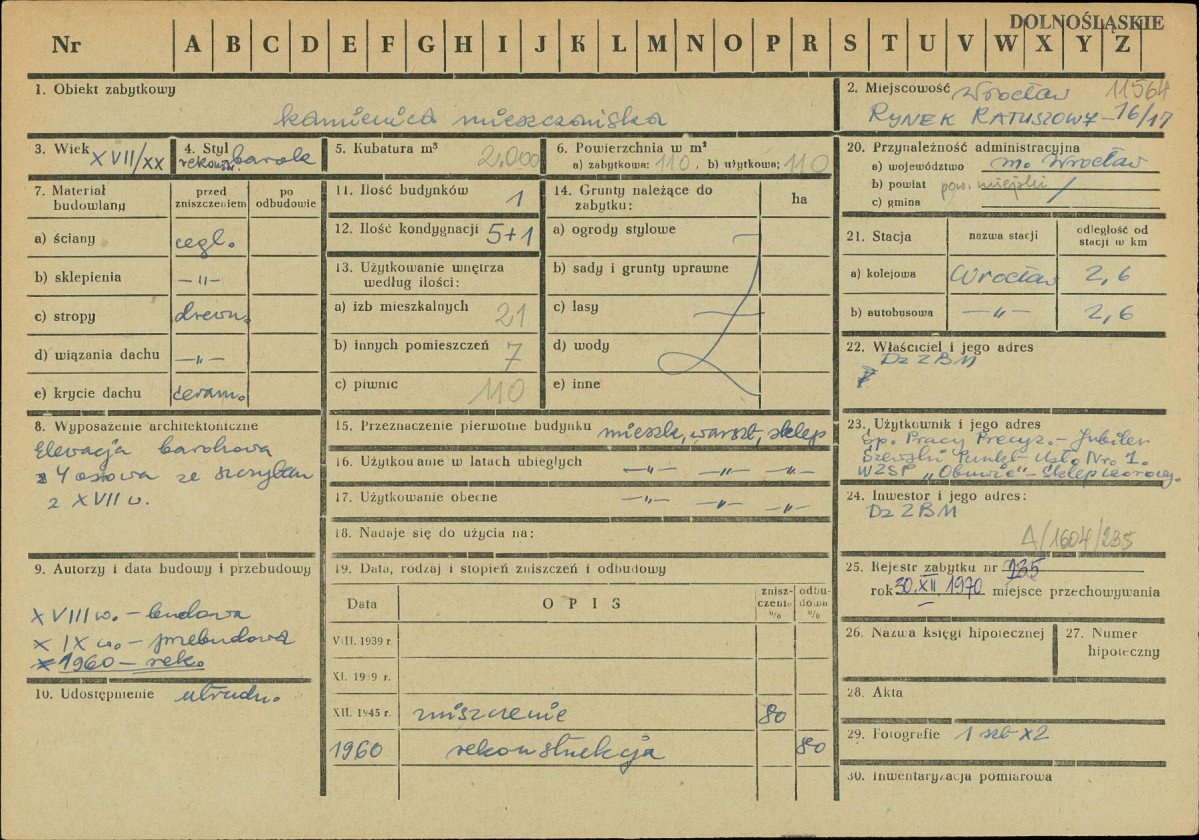 DOLNOŚLĄSKIE
Nr A B C D E F G H I J K L M N O P R S T U V W X Y Z
1. Obiekt zabytkowy
kamienica mieszczańska
2. Miejscowość Wrocław 11564
RYNEK RATUSZOWY - 16/17
3. Wiek XVII/XX
4. Styl rekonstr. barok
5. Kubatura m³ 2.000
6. Powierzchnia w m²
a) zabytkowa: 110. b) użytkowa: 110
20. Przynależność administracyjna
a) województwo m. Wrocław
b) powiat pow. miejski
c) gmina
7. Materiał budowlany
przed zniszczeniem
po odbudowie
a) ściany cegl.
b) sklepienia —"—
c) stropy drewn.
d) wiązania dachu —"—
e) krycie dachu ceram.
11. Ilość budynków 1
12. Ilość kondygnacji 5+1
13. Użytkowanie wnętrza według ilości:
a) izb mieszkalnych 21
b) innych pomieszczeń 7
c) piwnic 110
14. Grunty należące do zabytku:
ha
a) ogrody stylowe
b) sady i grunty uprawne
c) lasy
d) wody
e) inne
21. Stacja
nazwa stacji
odległość od stacji w km
a) kolejowa Wrocław 2,6
b) autobusowa —"— 2,6
22. Właściciel i jego adres
Dz ZBM
8. Wyposażenie architektoniczne
Elewacja barokowa
4 osiowa ze szczytem
z XVII w.
15. Przeznaczenie pierwotne budynku mieszk, warszt, sklep
16. Użytkowanie w latach ubiegłych —"— —"— —"—
17. Użytkowanie obecne —"— —"— —"—
18. Nadaje się do użycia na:
23. Użytkownik i jego adres
Sp. Pracy Precyz. - Jubiler
Szewski Punkt Usł. Nr. 1.
WZSP "Obuwie" - Sklep wzorowy.
24. Inwestor i jego adres:
Dz ZBM
A/1604/235
9. Autorzy i data budowy i przebudowy
XVIII w. - budowa
XIX w. - przebudowa
1960 - rek.
10. Udostępnienie utrudn.
19. Data, rodzaj i stopień zniszczeń i odbudowy
Data OPIS zniszczenie % odbudowa %
VIII. 1939 r.
XI. 1939 r.
XII. 1945 r. zniszczenie 80
1960 rekonstrukcja 80
25. Rejestr zabytku nr 235
rok 30.XII.1970 miejsce przechowywania
26. Nazwa księgi hipotecznej
27. Numer hipoteczny
28. Akta
29. Fotografie 1 szt x2
30. Inwentaryzacja pomiarowa